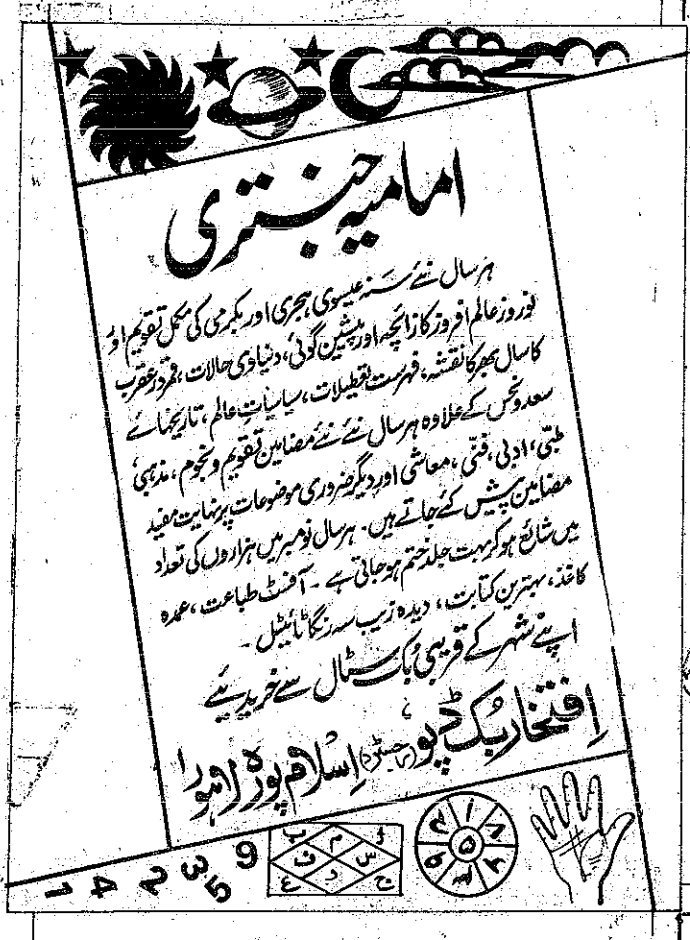 امامیہ جنتری
ہر سال نئے سنہ عیسوی ہجری اور بکرمی کی مکمل تقویم اور
نوروز عالم افروز کا زائچہ اور پیشین گوئی، دنیاوی حالات، قمر در عقرب
کا سال بھر کا نقشہ، فہرست تعطیلات، سیاسیات عالم، تاریخہائے
سعد و نحس کے علاوہ ہر سال نئے نئے مضامین تقویم و نجوم، مذہبی
طبّی، ادبی، فنّی، معاشی اور دیگر ضروری موضوعات پر نہایت مفید
مضامین پیش کئے جاتے ہیں۔ ہر سال نومبر میں ہزاروں کی تعداد
میں شائع ہو کر بہت جلد ختم ہو جاتی ہے ۔ آفسٹ طباعت، عمدہ
کاغذ، بہترین کتابت، دیدہ زیب سہ رنگا ٹائیٹل ۔
اپنے شہر کے قریبی بُک سٹال سے خریدئیے
افتخار بُک ڈپو (رجسٹرڈ) اسلام پورہ لاہور
1 4 2 3 5 9